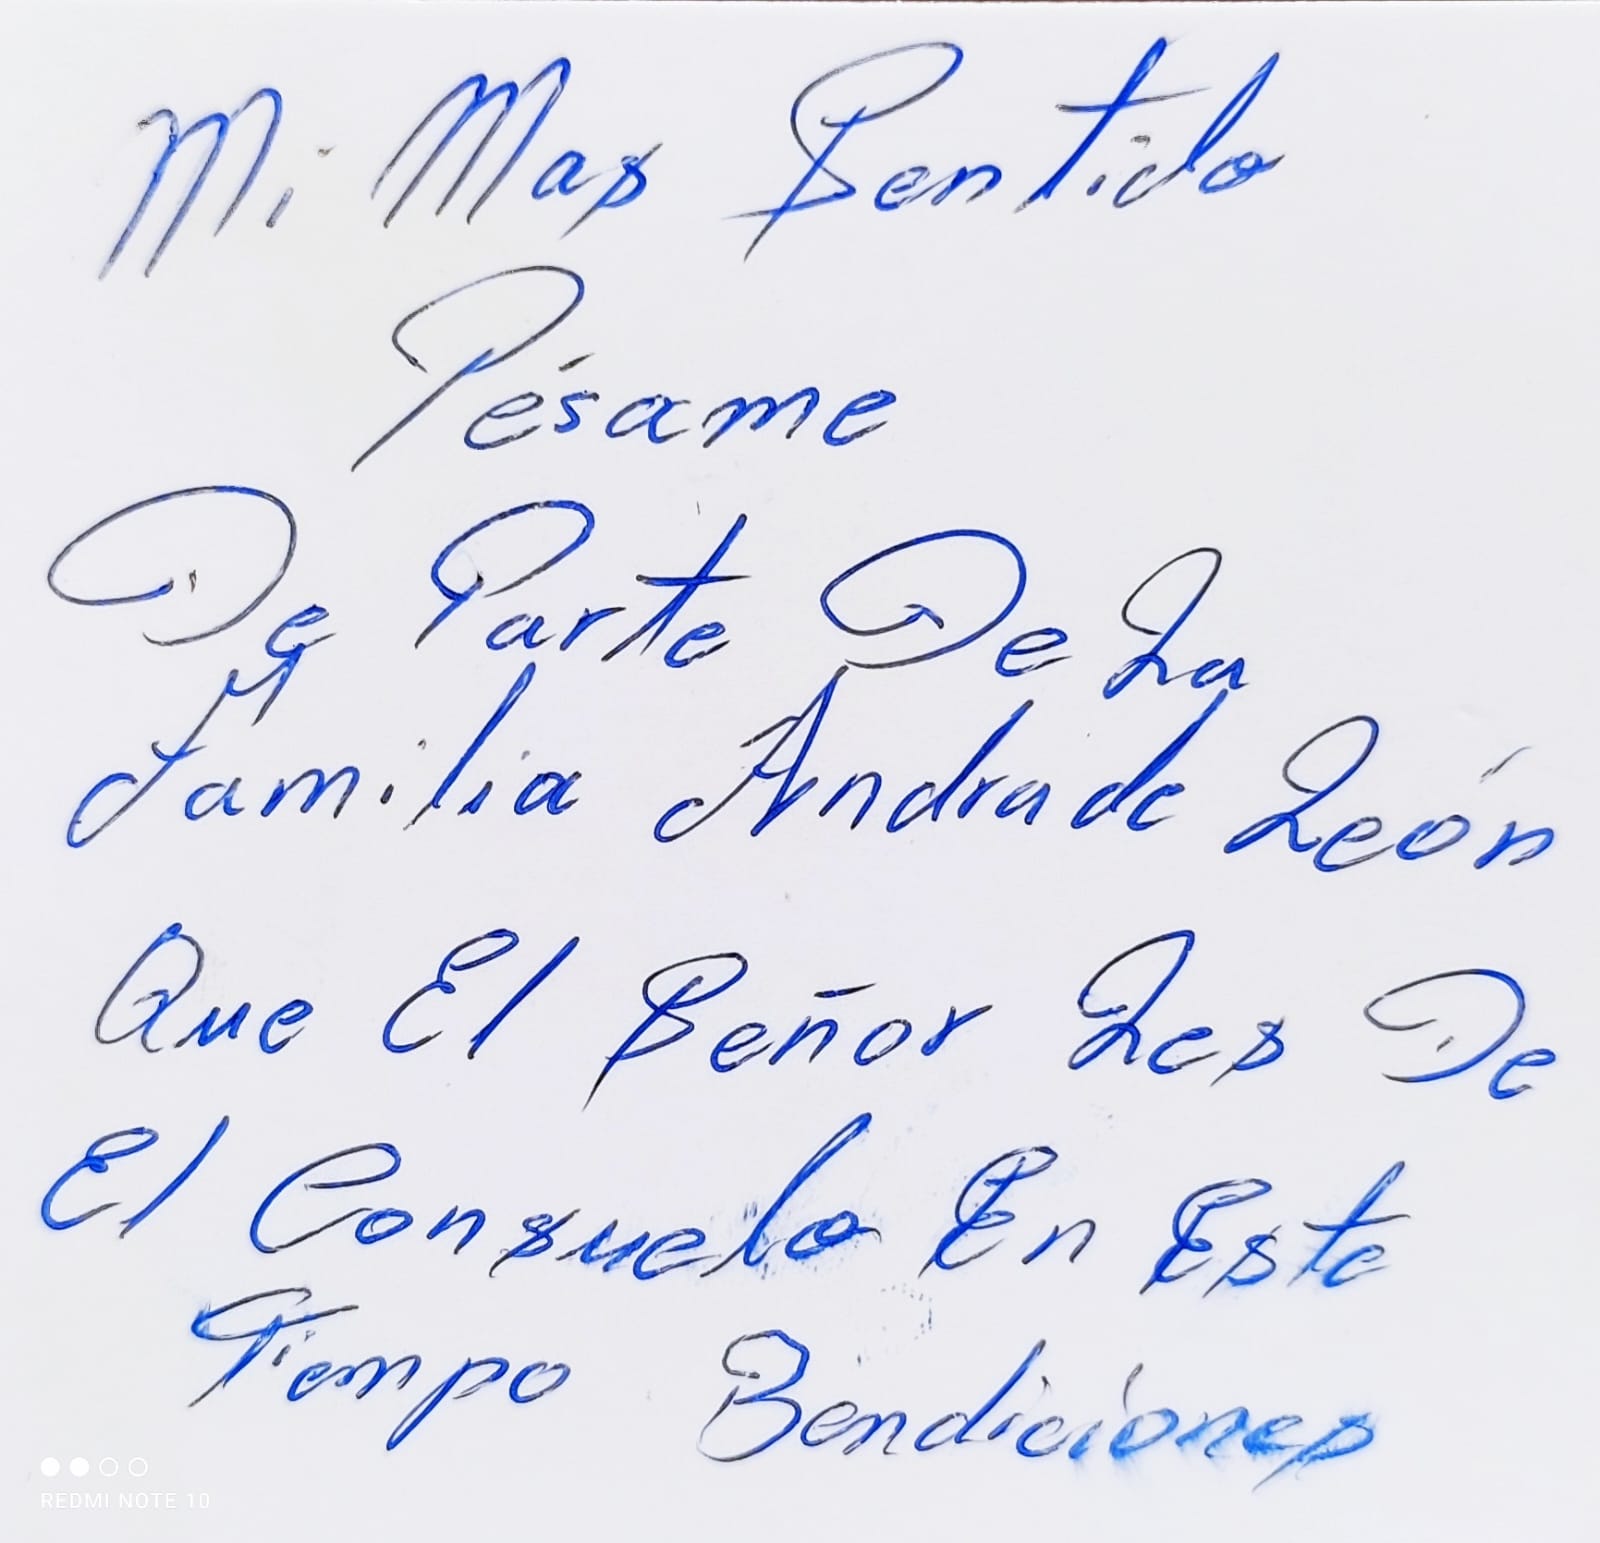 Mi Mas Sentido
Pésame
De Parte De La
Familia Andrade León
Que El Señor Les De
El Consuelo En Este
Tiempo Bendiciones
REDMI NOTE 10